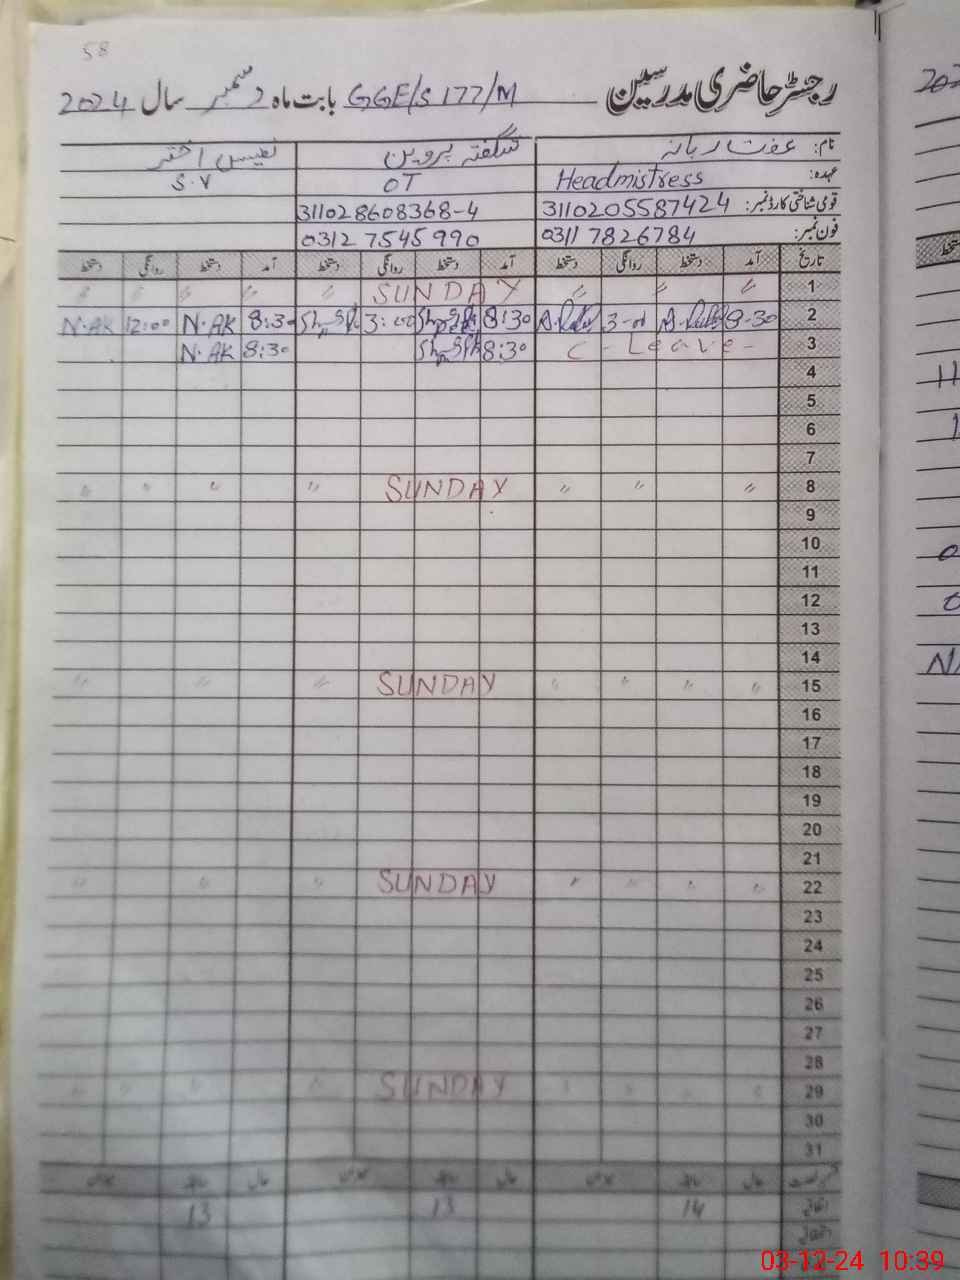 58
رجسٹر حاضری مدرسین GGE/S 177/M بابت ماہ دسمبر سال 2024
نام: عفت ربانہ شگفتہ پروین نفیس اختر
عہدہ: Headmistress OT S.V
قومی شناختی کارڈ نمبر: 3110205587424 311028608368-4
فون نمبر: 0311 7826784 0312 7545990
تاریخ آمد دستخط روانگی دستخط آمد دستخط روانگی دستخط آمد دستخط روانگی دستخط
1 〃 〃 〃 SUNDAY 〃 〃 〃 〃 〃
2 8-30 3-00 8:30 3:00 8:30 N.AK 12:00 N.AK
3 C-Leave- 8:30 8:30 N.AK
4
5
6
7
8 〃 〃 〃 SUNDAY 〃 〃 〃 〃
9
10
11
12
13
14
15 〃 〃 〃 〃 SUNDAY 〃 〃 〃
16
17
18
19
20
21
22 〃 〃 〃 〃 SUNDAY 〃 〃 〃
23
24
25
26
27
28
29 〃 〃 〃 〃 SUNDAY 〃 〃 〃 〃
30
31
حال سابقہ میزان حال سابقہ میزان حال سابقہ میزان
اتفاقیہ 14 13 13
03-12-24 10:39